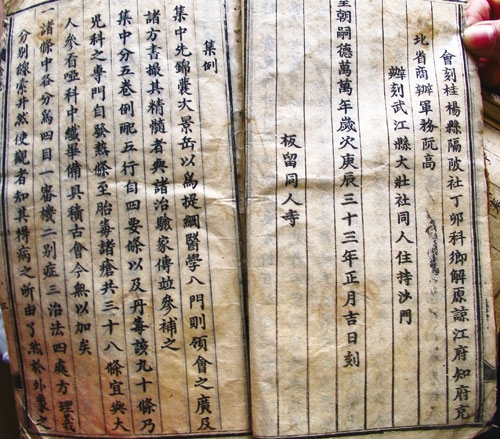 會刻桂楊縣陽陂社丁卯科鄉解原諒江府知府克
北省商辦軍務阮高
辦刻武江縣大壯社同人住持沙門
皇朝嗣德萬萬年歲次庚辰三十三年正月吉日刻
板留同人寺
集例
集中先錦囊次景岳以為提綱醫學入門則領會之廣及
諸方書撮其精髓者與諸治驗家傳並參補之
集中分五卷例配五行自四要條以及丹毒該九十條乃
兒科之專門自發熱條至胎毒諸瘡共三十八條宜與大
人參看啞科中纖畢備具積古會今無以加矣
一諸條中各分為四目一審機二別症三治法四處方理義
分別線索井然使觀者知其得病之所由了然於外象之